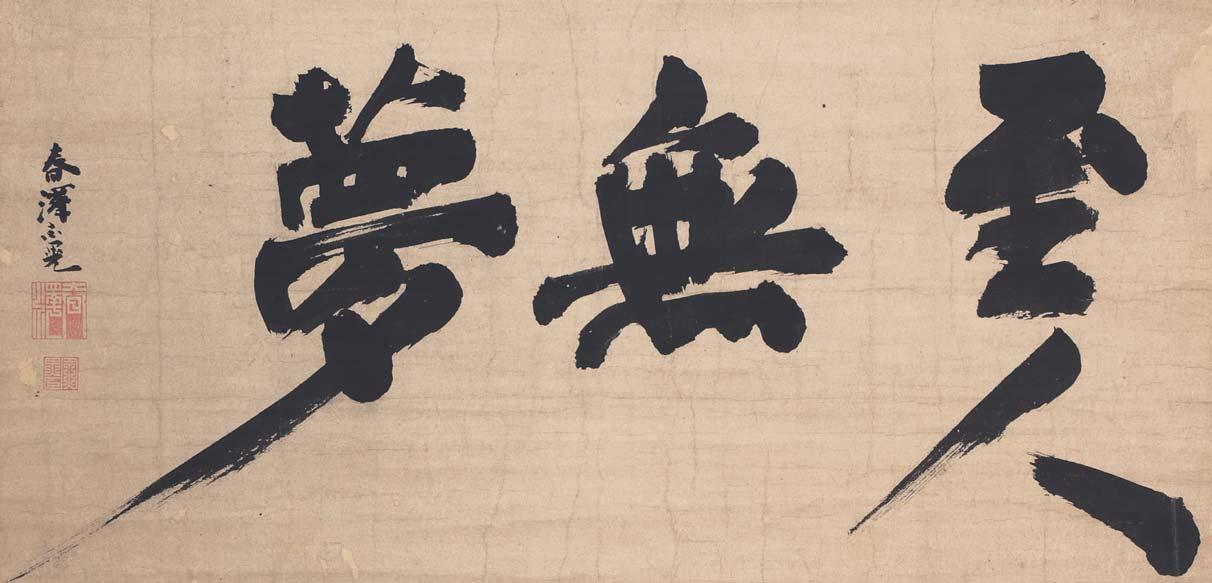 至人
無
夢
春澤